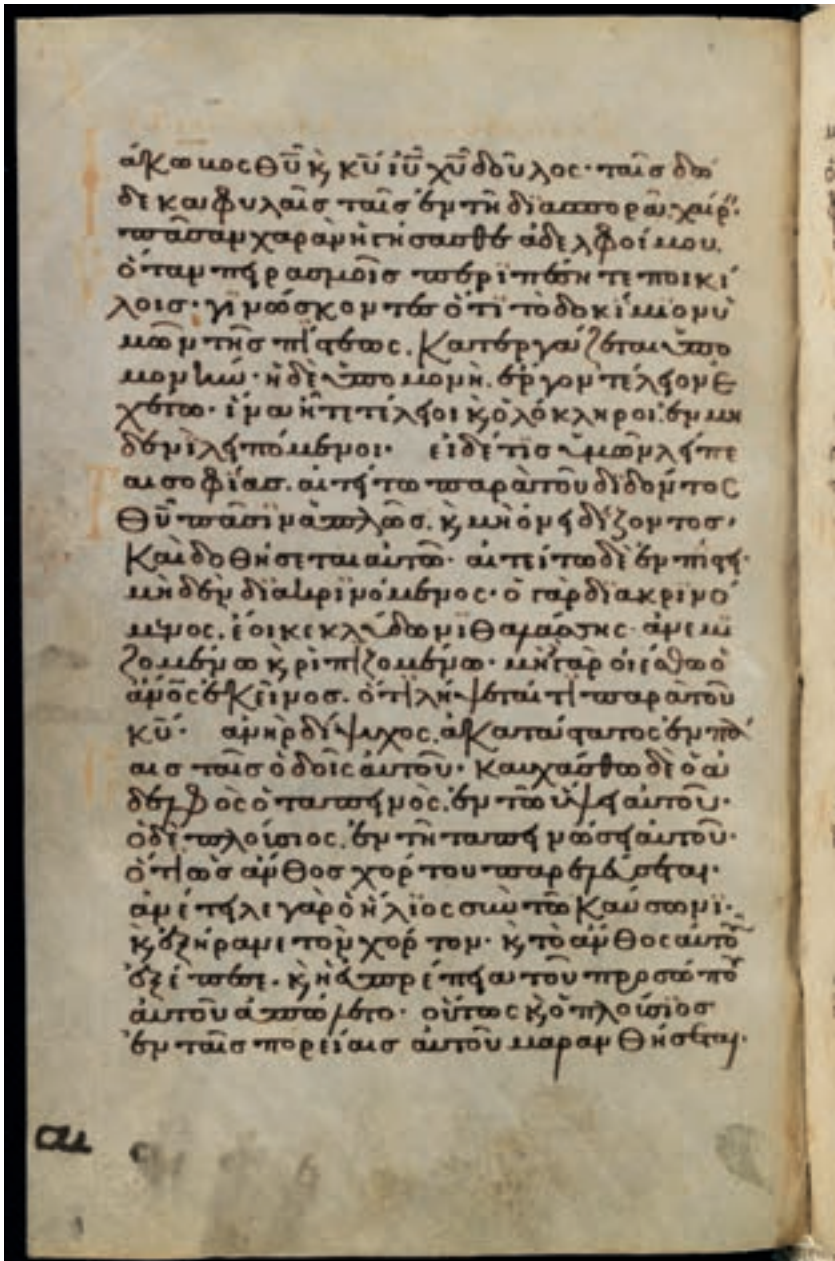 άκωκος θῡ κ, κῡ ῑῡ χῡ δοῦλος· ταῖς δώ
δεκα φυλαῖς ταῖς ἐν τῆ διασπορᾶ· χαίρ·
πᾶσαν χαρὰν ἡγήσασθε ἀδελφοί μου,
ὅταν πειρασμοῖς περιπέσητε ποικί
λοις· γινώσκοντες ὅτι τὸ δοκίμιον ὑ
μῶν τῆς πίστεως, κατεργάζεται ὑπο
μονήν· ἡ δὲ ὑπομονὴ, ἔργον τέλειον ἐ
χέτω· ἵνα ἦτε τέλειοι κ, ὁλόκληροι ἐν μη
δενὶ λειπόμενοι· εἰ δέ τις ὑμῶν λείπε
αι σοφίας, αἰτείτω παρὰ τοῦ διδόντος
θῡ πᾶσιν ἁπλῶς, κ, μὴ ὀνειδίζοντος,
Καὶ δοθήσεται αὐτῶ· αἰτείτω δὲ ἐν πίστει·
μηδὲν διακρινόμενος· ὁ γὰρ διακρινό
μενος, ἔοικε κλύδωνι θαλάσσης ἀνεμι
ζομένω κ, ριπιζομένω· μὴ γὰρ οἰέσθω ὁ
ἀνος ἐκεῖνος, ὅτι λήψεταί τι παρὰ τοῦ
κῡ· ἀνὴρ δίψυχος, ἀκατάστατος ἐν πά
αις ταῖς ὁδοῖς αὐτοῦ· καυχάσθω δὲ ὁ ἀ
δελφὸς ὁ ταπεινὸς, ἐν τῶ ὕψει αὐτοῦ·
ὁ δὲ πλούσιος, ἐν τῆ ταπεινώσει αὐτοῦ·
ὅτι ὡς ἄνθος χόρτου παρελεύσεται·
ἀνέτειλε γὰρ ὁ ἥλιος σὺν τῶ καύσωνι·
κ, ἐξήρανε τὸν χόρτον· κ, τὸ ἄνθος αὐτοῦ
ἐξέπεσε, κ, ἡ εὐπρέπεια τοῦ προσώπου
αὐτοῦ ἀπώλετο· οὕτως κ, ὁ πλούσιος
ἐν ταῖς πορείαις αὐτοῦ μαρανθήσεται·